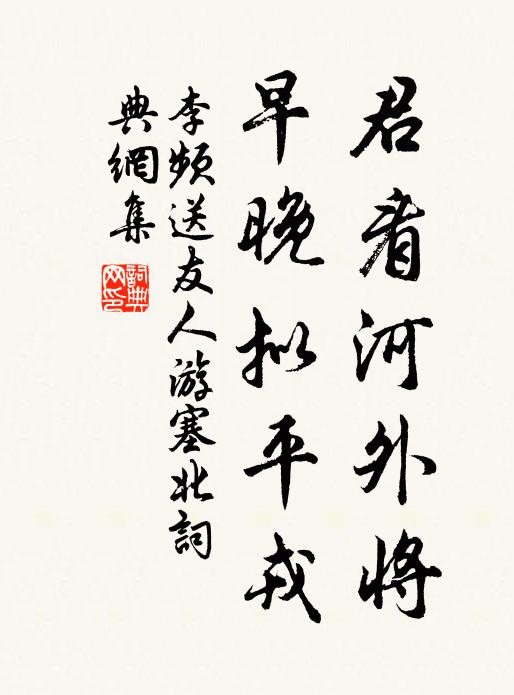 君看河外將
早晚拟平戎
李频送友人游塞北詞
典網集
詞典
网印